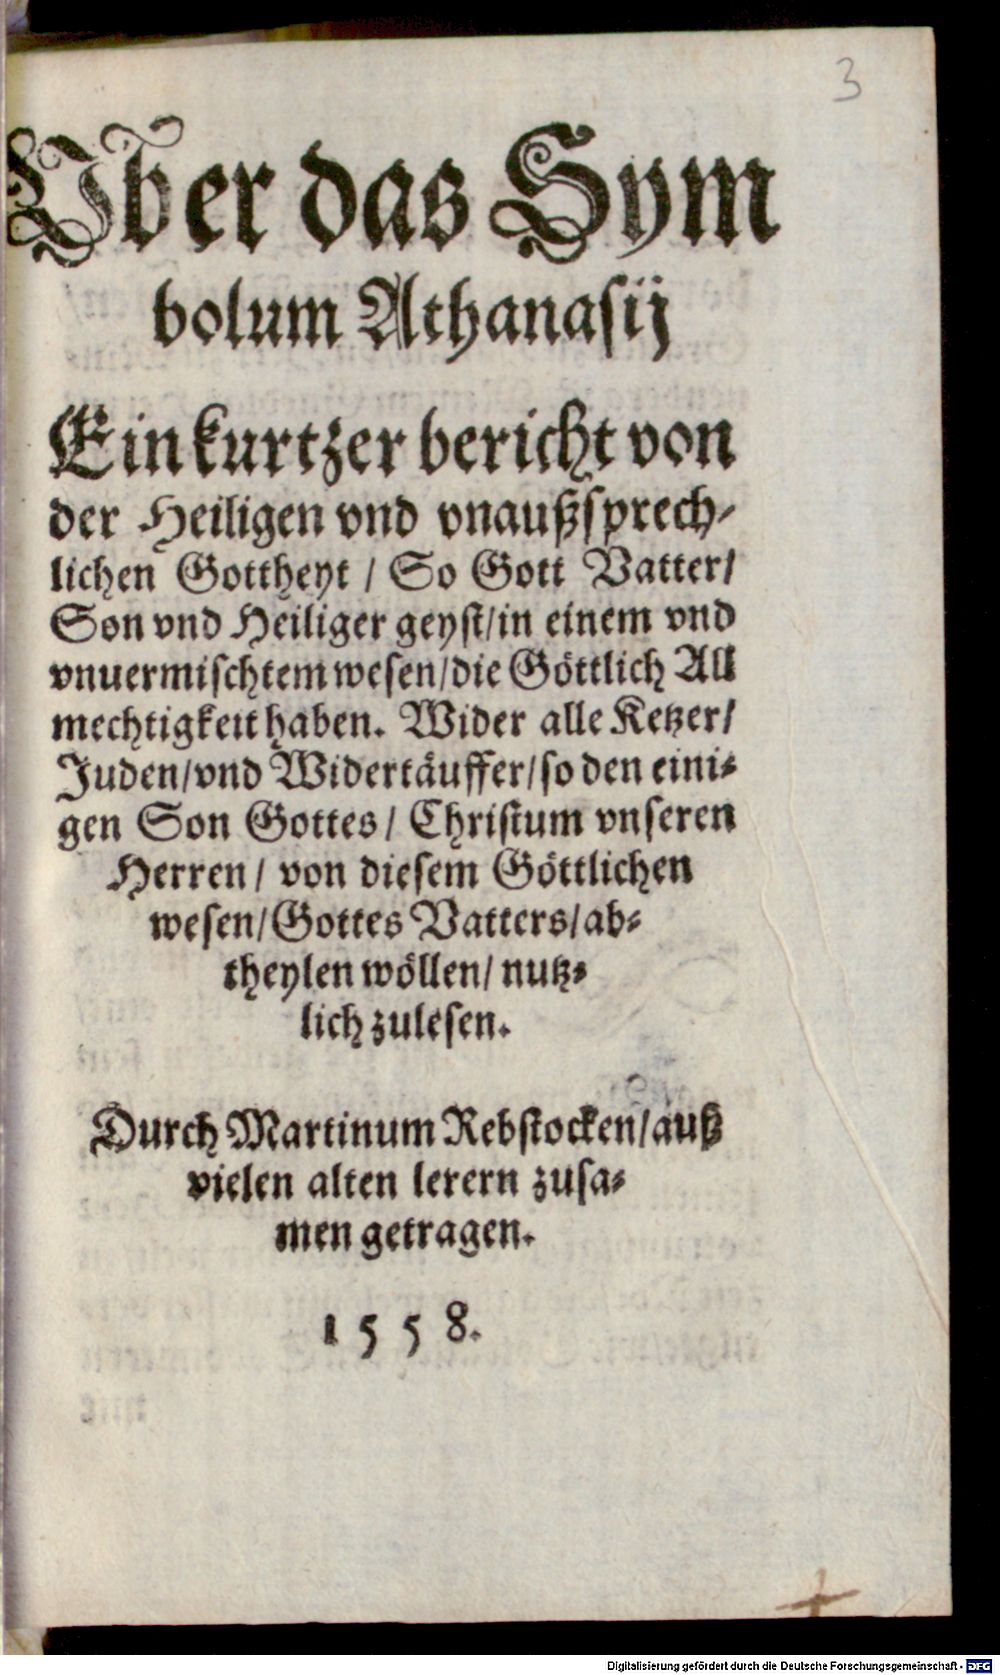 3
Vber das Sym
bolum Athanasij
Ein kurtzer bericht von
der Heiligen vnd vnaußsprech-
lichen Gottheyt / So Gott Vatter/
Son vnd Heiliger geyst/in einem vnd
vnuermischtem wesen/die Göttlich All
mechtigkeit haben. Wider alle Ketzer/
Juden/vnd Widertäuffer/so den eini-
gen Son Gottes / Christum vnseren
Herren / von diesem Göttlichen
wesen/Gottes Vatters/ab-
theylen wöllen/ nutz-
lich zulesen.
Durch Martinum Rebstocken/auß
vielen alten lerern zusa-
men getragen.
1 5 5 8.
Digitalisierung gefördert durch die Deutsche Forschungsgemeinschaft - DFG